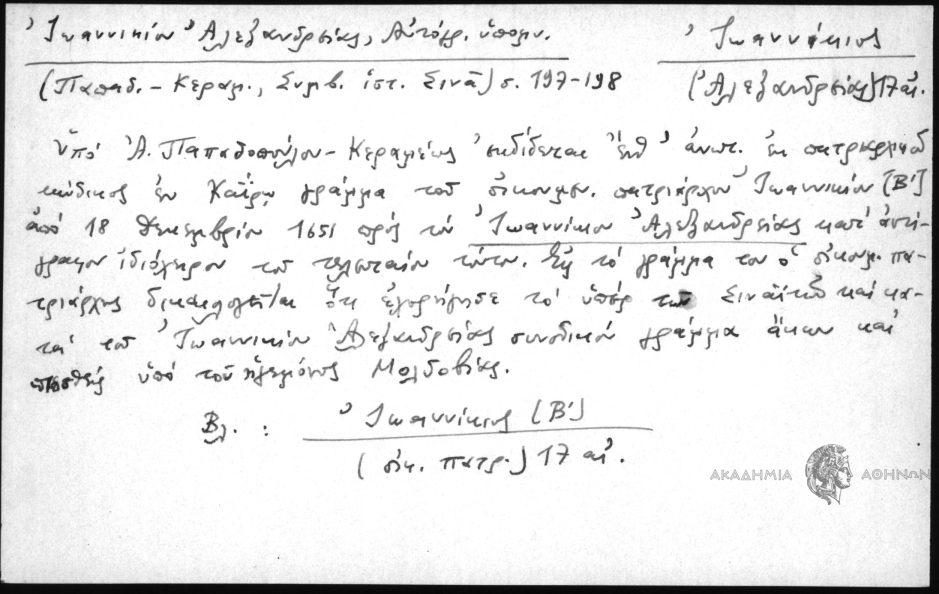 Ἰωαννικίου Ἀλεξανδρείας, Αὐτόγρ. ὑπόμν.
Ἰωαννίκιος
(Παπαδ.-Κεραμ., Συμβ. ἱστ. Σινᾶ) σ. 197-198
(Ἀλεξανδρείας) 17 αἰ.
Ὑπό Ἀ. Παπαδοπούλου-Κεραμέως ἐκδίδεται ἔνθ' ἀνωτ. ἐκ πατριαρχικοῦ
κώδικος ἐν Καΐρῳ γράμμα τοῦ οἰκουμεν. πατριάρχου Ἰωαννικίου [Β']
ἀπό 18 Δεκεμβρίου 1651 πρός τόν Ἰωαννίκιον Ἀλεξανδρείας κατ' ἀντί-
γραφον ἰδιόχειρον τοῦ τελευταίου τούτου. Εἰς τό γράμμα του ὁ οἰκουμ. πα-
τριάρχης δικαιολογεῖται ὅτι ἐχορήγησε τό ὑπέρ τῶν Σιναϊτῶν καί κα-
τά τοῦ Ἰωαννικίου Ἀλεξανδρείας συνοδικόν γράμμα ἄκων καί
πιεσθείς ὑπό τοῦ ἡγεμόνος Μολδοβίας.
Βλ. : Ἰωαννίκιος [Β']
(οἰκ. πατρ.) 17 αἰ.
ΑΚΑΔΗΜΙΑ ΑΘΗΝΩΝ